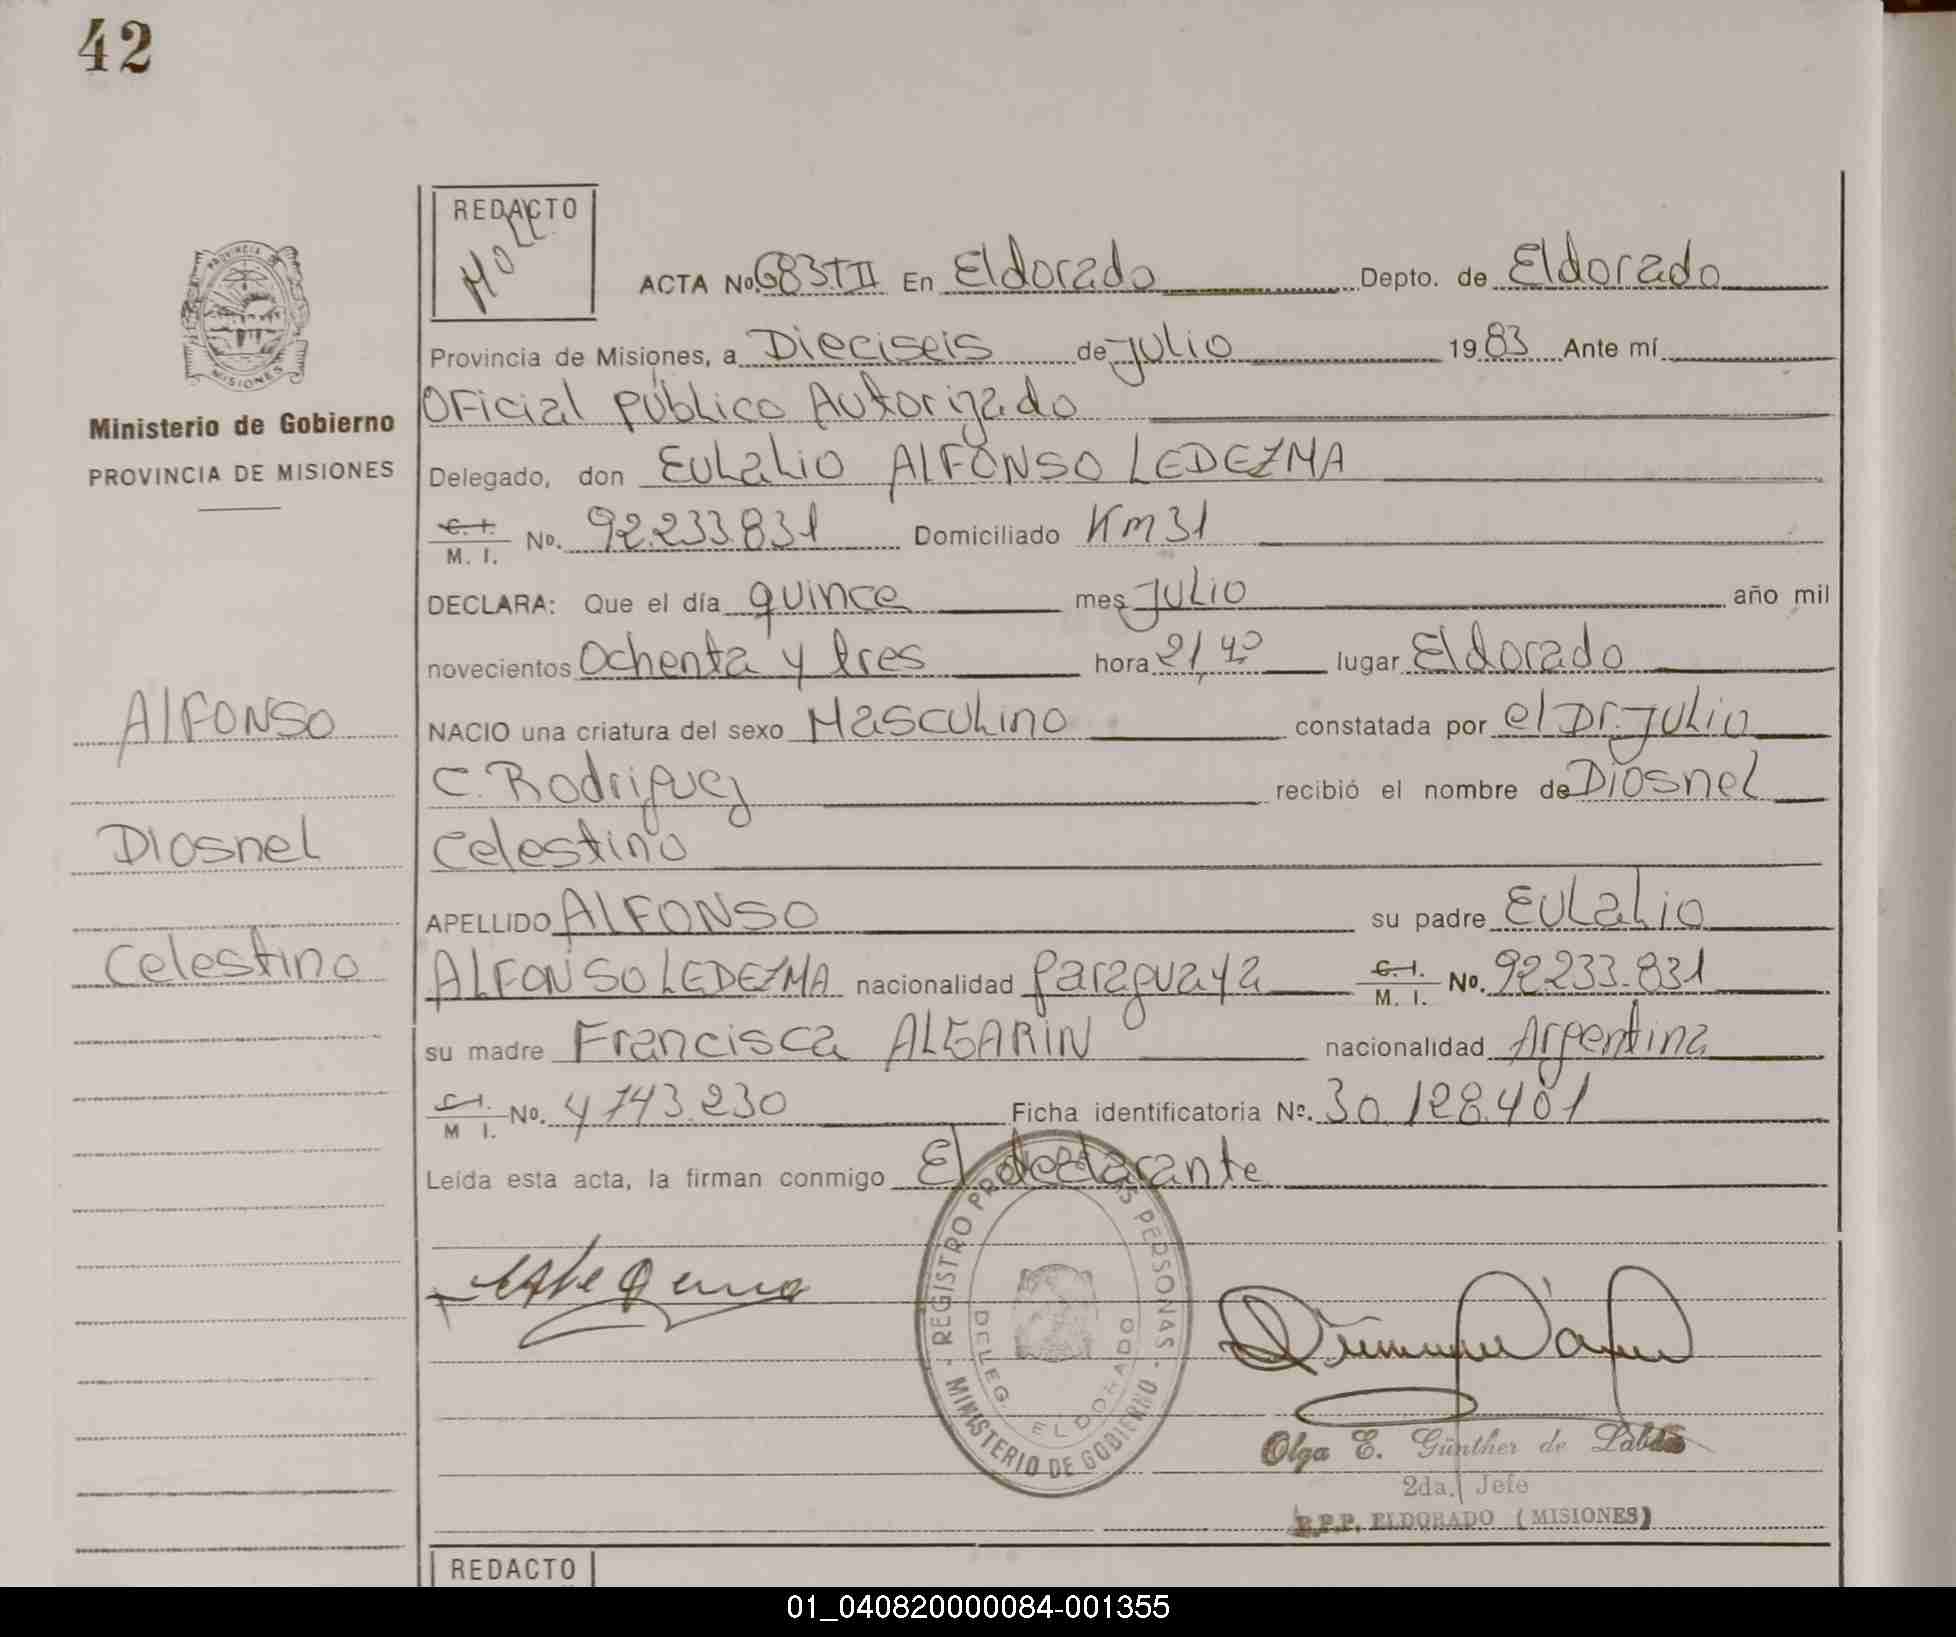 42
REDACTO
MOLL
PROVINCIA DE
MISIONES
Ministerio de Gobierno
PROVINCIA DE MISIONES
ACTA No. 683TII En Eldorado Depto. de Eldorado
Provincia de Misiones, a Dieciseis de julio 1983 Ante mí
Oficial público Autorizado
Delegado, don Eulalio ALFONSO LEDEZMA
C. I. M. I. No. 92.233.831 Domiciliado Km31
DECLARA: Que el día quince mes julio año mil
novecientos Ochenta y tres hora 21,40 lugar Eldorado
NACIO una criatura del sexo Masculino constatada por el Dr. julio
C. Rodriguez recibió el nombre de Diosnel
Celestino
APELLIDO ALFONSO su padre Eulalio
ALFONSO LEDEZMA nacionalidad paraguaya C. I. M. I. No. 92.233.831
su madre Francisca ALGARIN nacionalidad Argentina
C. I. M I. No. 4.743.230 Ficha identificatoria No. 30.128.401
Leída esta acta, la firman conmigo El declarante
ALFONSO
Diosnel
Celestino
REGISTRO PROV. DE LAS PERSONAS
MINISTERIO DE GOBIERNO
DELEG. ELDORADO
Olga E. Günther de
2da. Jefe
R.P.P. ELDORADO (MISIONES)
REDACTO
01_040820000084-001355